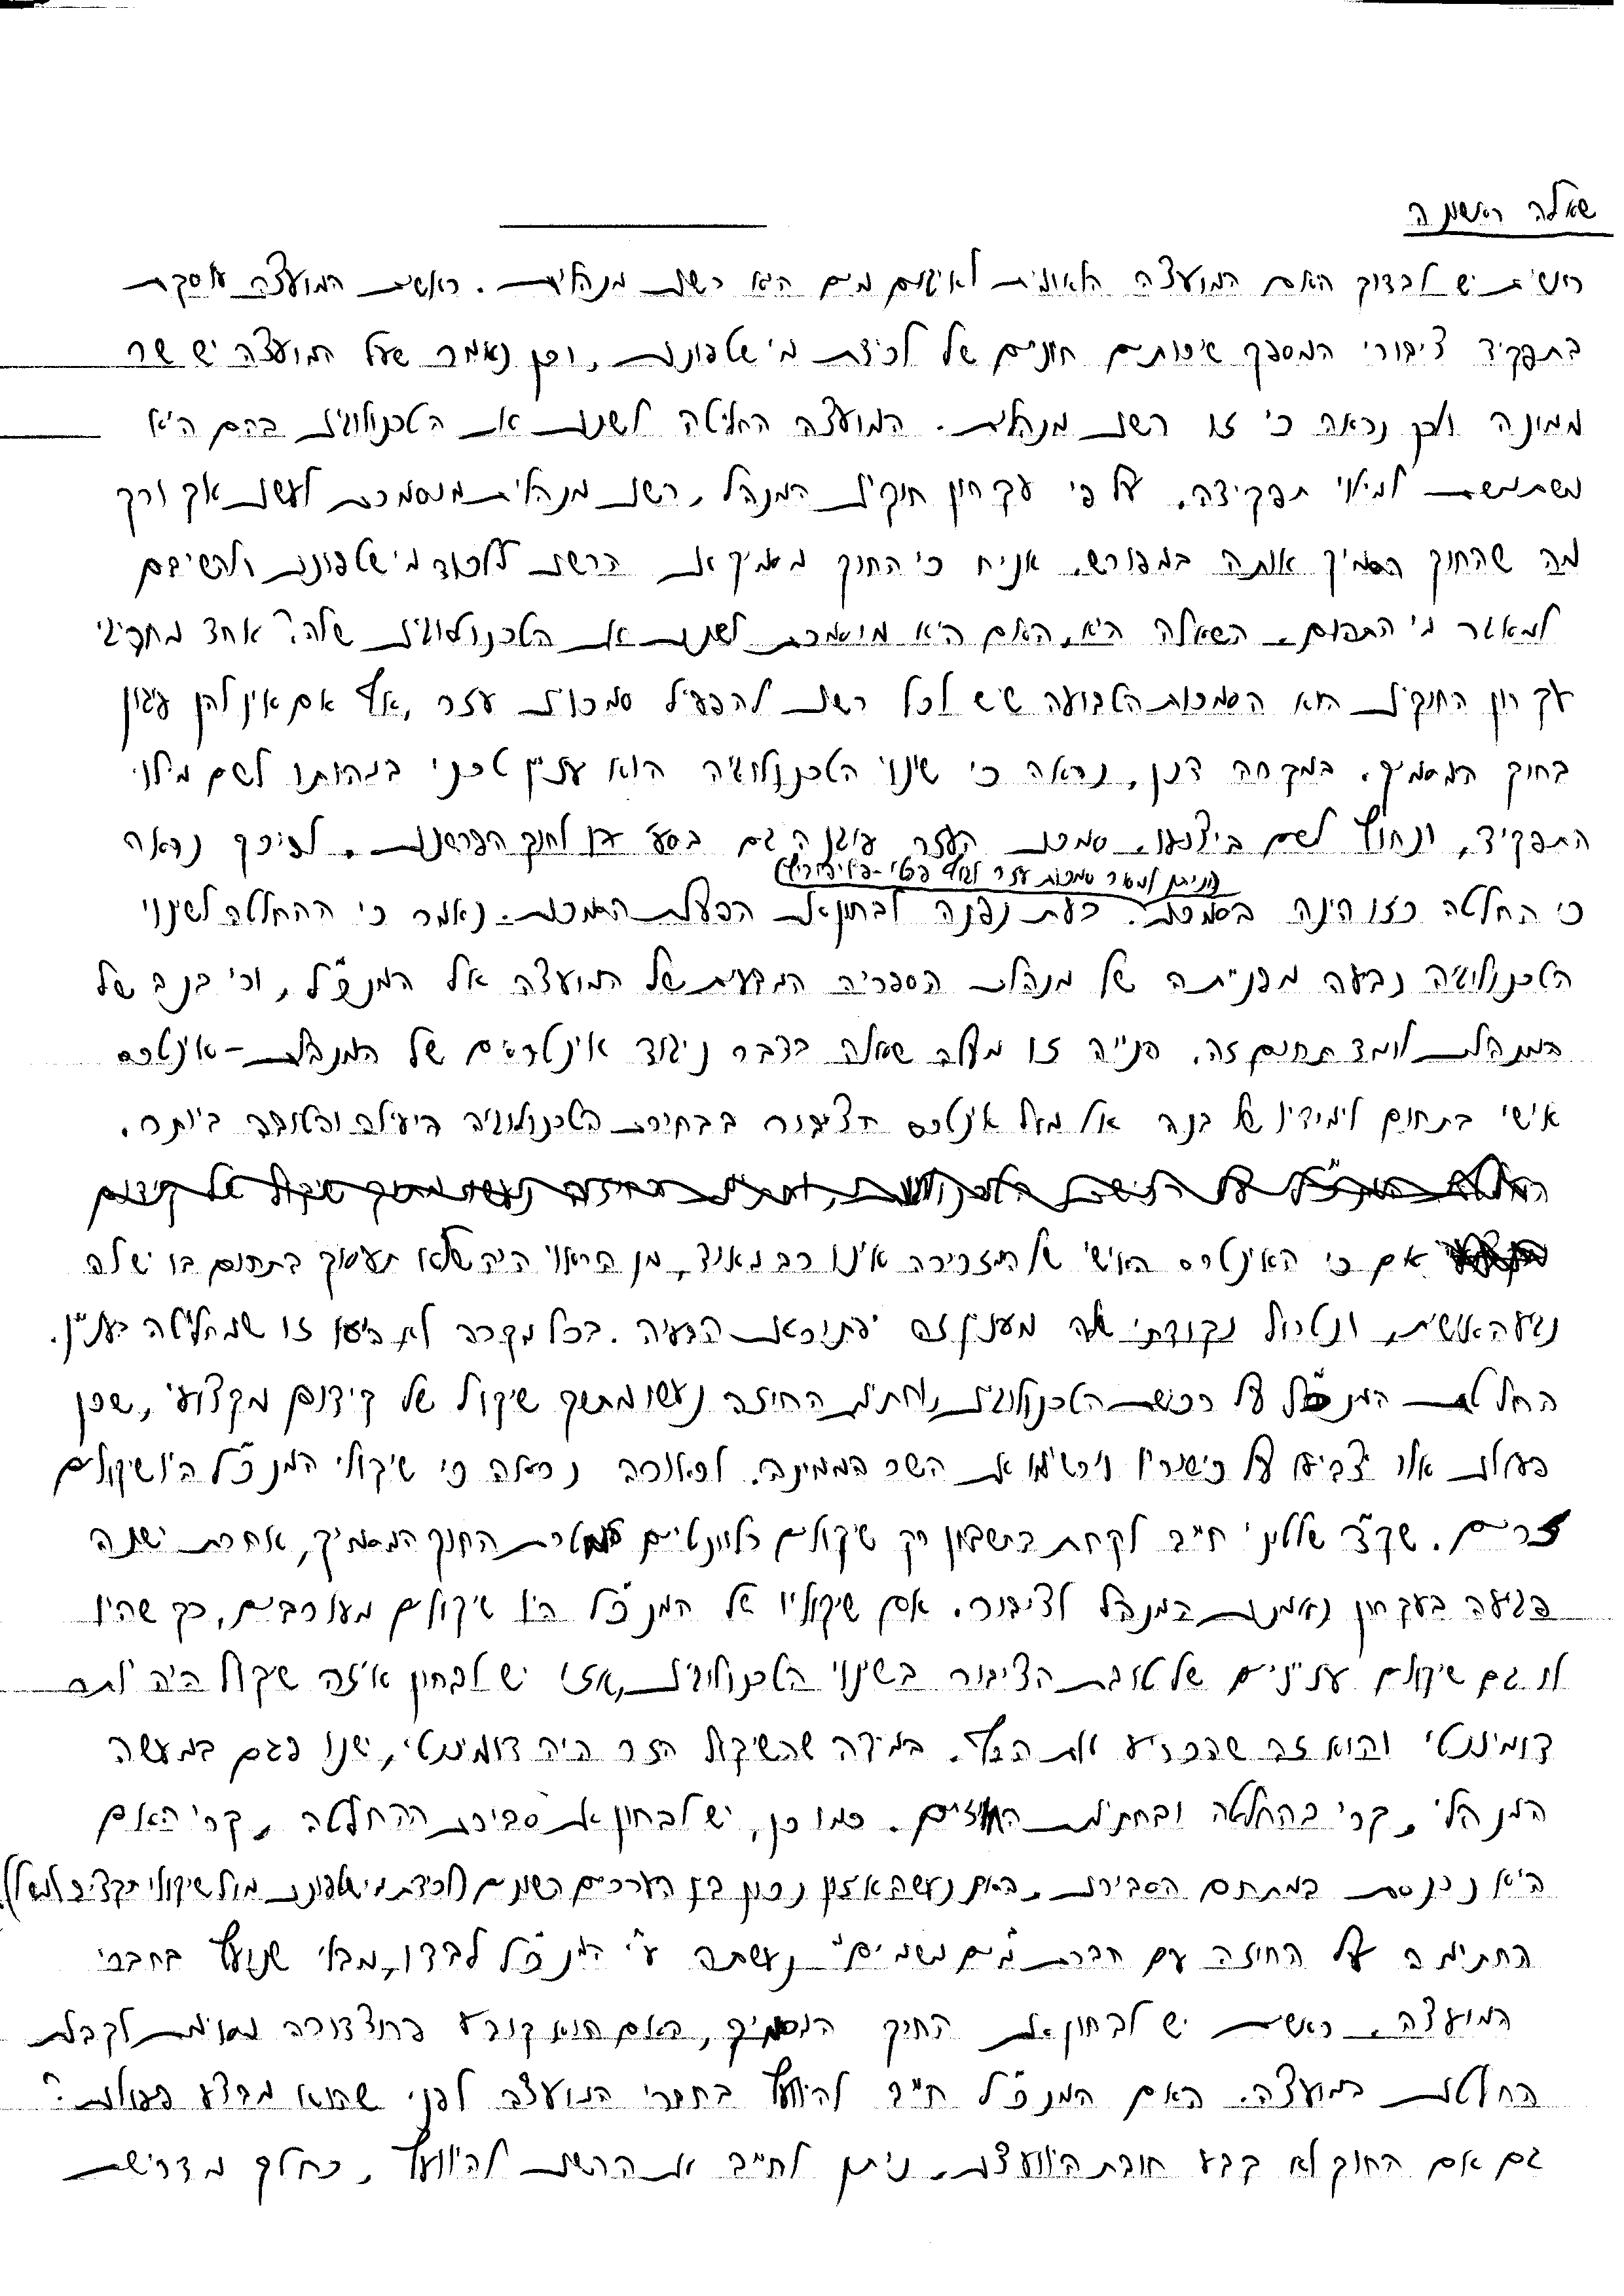 שאלה ראשונה
ראשית יש לבדוק האם המועצה הלאומית לאיגום מים היא רשות מנהלית. ראשית המועצה עוסקת
בתפקיד ציבורי המספק שירותים חיוניים של לכידת מי שטפונות, וכן נאמר שעל המועצה יש שר
ממונה ולכן נראה כי זו רשות מנהלית. המועצה החליטה לשנות את הטכנולוגיות בהם היא
משתמשת למילוי תפקידה. על פי עקרון חוקיות המנהל, רשות מנהלית מוסמכת לעשות אך ורק
מה שהחוק הסמיך אותה במפורש. אניח כי החוק מסמיך את הרשות ללכוד מי שטפונות ולהשיבם
למאגר מי התהום. השאלה היא, האם היא מוסמכת לשנות את הטכנולוגיות שלה? אחד מחריגי
עקרון החוקיות הוא הסמכות הטבועה שיש לכל רשות להפעיל סמכויות עזר, אף אם אין להן עיגון
בחוק המסמיך. במקרה דנן, נראה כי שינוי הטכנולוגיה הוא עניין טכני במהותו לשם מילוי
התפקיד, ונחוץ לשם ביצועו. סמכות העזר עוגנה גם בסע' לחוק הפרשנות. לפיכך נראה
(וניתן לאצול סמכות עזר לגוף פרטי -)
כי החלטה כזו הינה בסמכות. כעת נפנה לבחון את הפעלת הסמכות. נאמר כי ההחלטה לשינוי
הטכנולוגיה נבעה מפנייתה של מנהלת הספריה המדעית של המועצה אל המנכ"ל, וכי בנה של
המנהלת לומד תחום זה. פנייה זו מעלה שאלה בדבר ניגוד אינטרסים של המנהלת - אינטרס
אישי בתחום לימודיו של בנה אל מול אינטרס הציבור בבחירת הטכנולוגיה היעילה והטובה ביותר.
אם כי האינטרס האישי של המזכירה אינו רב מאוד, מן הראוי היה שלא תעסוק בתחום בו יש לה
נגיעה אישית, ונטרול נקודתי שלה מעניין זה יפתור את הבעיה. בכל מקרה לא הייתה זו שהחליטה בעניין.
החלטת המנכ"ל על רכישת הטכנולוגיות, וחתימת החוזה נעשו מתוך שיקול של קידום מקצועי, שכן
פעולות אלו יצביעו על כישוריו וירשימו את השר הממונה. לכאורה נראה כי שיקולי המנכ"ל היו שיקולים
זרים. שק"ד שלטוני חייב לקחת בחשבון רק שיקולים רלוונטיים למטרת החוק המסמיך, אחרת ישנה
פגיעה בעקרון נאמנות המנהל לציבור. אם שיקוליו של המנכ"ל היו שיקולים מעורבים, כך שהיו
לו גם שיקולים ענייניים של טובת הציבור בשינוי הטכנולוגיות, אזי יש לבחון איזה שיקול היה יותר
דומיננטי והוא זה שהכריע את הכף. במידה שהשיקול הזר היה דומיננטי, ישנו פגם במעשה
המנהלי, קרי בהחלטה ובחתימת החוזים. כמו כן, יש לבחון את סבירות ההחלטה, קרי האם
היא נכנסת במתחם הסבירות. האם נעשה איזון נכון בין הערכים השונים (לכידת מי שטפונות מול שיקולי תקציב למשל).
החתימה על החוזה עם חברת "מים משמיים" נעשתה ע"י המנכ"ל לבדו, מבלי שנועץ בחברי
המועצה. ראשית יש לבחון את החוק המסמיך, האם הוא קובע פרוצדורה מסוימת לקבלת
החלטות במועצה. האם המנכ"ל חייב להיוועץ בחברי המועצה לפני שהוא מבצע פעולות?
גם אם החוק לא קבע חובת היוועצות, ניתן לחייב את הרשות להיוועץ, כחלק מדרישת